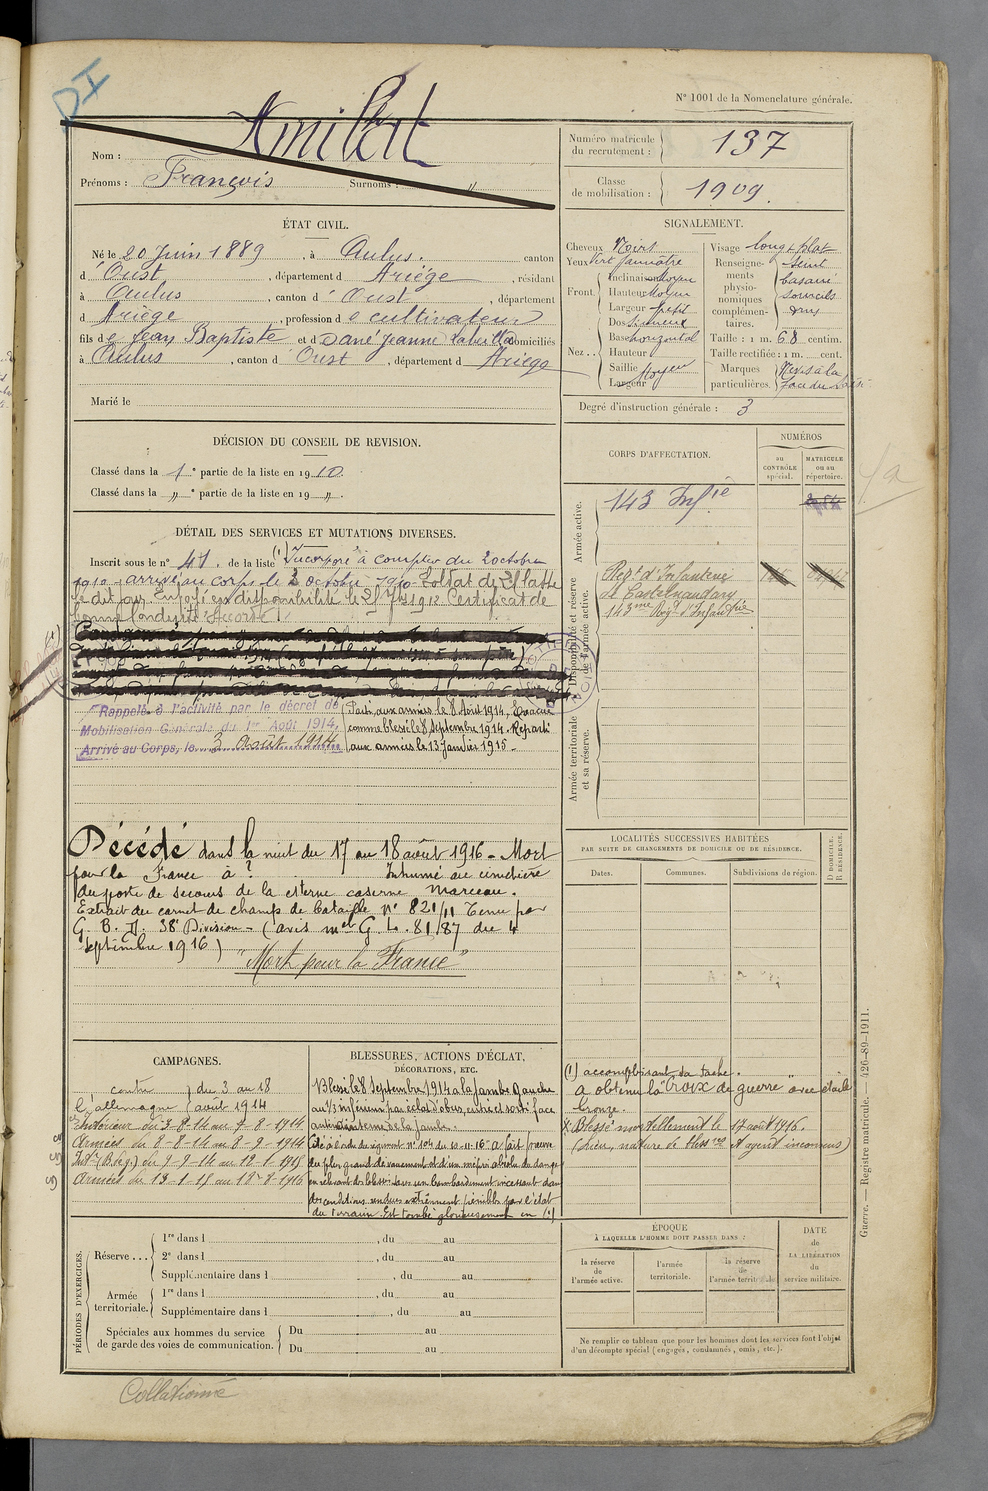 DI
N° 1001 de la Nomenclature générale.
Nom : Amilhat
Prénoms : François Surnoms : "
Numéro matricule du recrutement : 137
Classe de mobilisation : 1909.
ÉTAT CIVIL.
Né le 20 Juin 1889, à Aulus. canton
d'Oust, département d Ariège, résidant
à Aulus, canton d'Oust, département
d Ariège, profession de cultivateur
fils de Jean Baptiste et d Dané Jeanne domiciliés
à Aulus, canton d Oust, département d Ariège
Marié le
SIGNALEMENT.
Cheveux Noirs
Yeux Vert jaunâtre
Front. Inclinaison Moyen
Hauteur Moyen
Largeur petit
Nez.. Dos Sinueux
Base horizontal
Hauteur
Saillie Moyen
Largeur
Visage long & plat
Renseignements physionomiques complémentaires. teint basané sourcils drus
Taille : 1 m. 68 centim.
Taille rectifiée : 1 m. cent.
Marques particulières.
Degré d'instruction générale : 3
DÉCISION DU CONSEIL DE REVISION.
Classé dans la 1e partie de la liste en 1910.
Classé dans la " e partie de la liste en 19 ".
DÉTAIL DES SERVICES ET MUTATIONS DIVERSES.
Inscrit sous le n° 41. de la liste (1) Incorporé à compter du 2 octobre
1910 - arrivé au corps le 2 octobre 1910 Soldat de 2e classe
le dit jour. Envoyé en disponibilité le 25 7bre 1912 Certificat de
bonne conduite "Accordé".
Rappelé à l'activité par le décret de
Mobilisation Générale du 1er Août 1914,
Arrivé au Corps, le 3 août 1914
Parti aux armées le 8 Août 1914, Evacué
comme blessé le 8 Septembre 1914. Réparti
aux armées le 13 Janvier 1915.
Décédé dans la nuit du 17 au 18 août 1916 - Mort
pour la France à ? Inhumé au cimetière
du poste de secours de la citerne caserne Marceau.
Extrait du carnet de champs de bataille n° 821/11 tenu par
G. B. D. 38e Division - (avis mel G. L. 81/87 du 4
septembre 1916)
"Mort pour la France"
CORPS D'AFFECTATION.
NUMÉROS
au CONTRÔLE spécial.
MATRICULE ou au répertoire.
Armée active.
143 Infie
Disponibilité et réserve de l'armée active.
Régt d'Infanterie
de Castelnaudary
143me Régt d'Infanterie
Armée territoriale et sa réserve.
LOCALITÉS SUCCESSIVES HABITÉES
PAR SUITE DE CHANGEMENTS DE DOMICILE OU DE RÉSIDENCE.
Dates. Communes. Subdivisions du région.
D DOMICILE.
R RÉSIDENCE.
(1) accomplissant sa tache.
a obtenu la "Croix de guerre" avec étoile
bronze.
X. Blessé mortellement le 17 août 1916.
(Lieu, nature de bless res et agent inconnus)
CAMPAGNES.
contre l'allemagne du 3 au 18 août 1914
Intérieur du 3-8-14 au 7-8-1914
Armées du 8-8-14 au 8-9-1914
Intr (Bleg.) du 9-9-14 au 12-1-1915
Armées du 13-1-15 au 18-8-1916
BLESSURES, ACTIONS D'ÉCLAT,
DÉCORATIONS, ETC.
Blessé le 8 Septembre 1914 à la jambe Gauche
au 1/3 inférieur par éclat d'obus, entré et sorti face
antéroexterne de la jambe.
Cité à l'ordre du régiment n° 104 du 10-11-16 "a fait preuve
du plus grand dévouement et d'un mépris absolu du danger
en relevant des blessés sous un bombardement incessant dans
des conditions rendues extrêmement pénibles par l'état
du terrain. Est tombé glorieusement en (1)
PÉRIODES D'EXERCICES.
Réserve... 1re dans l , du au
2e dans l , du au
Supplémentaire dans l , du au
Armée territoriale. 1re dans l , du au
Supplémentaire dans l , du au
Spéciales aux hommes du service de garde des voies de communication. Du au
Du au
ÉPOQUE
À LAQUELLE L'HOMME DOIT PASSER DANS :
la réserve de l'armée active.
l'armée territoriale.
la réserve de l'armée territoriale
DATE de LA LIBÉRATION du service militaire.
Ne remplir ce tableau que pour les hommes dont les services font l'objet
d'un décompte spécial (engagés, condamnés, omis, etc.).
Guerre. — Registre matricule. — 426-89-1911.
Collationné